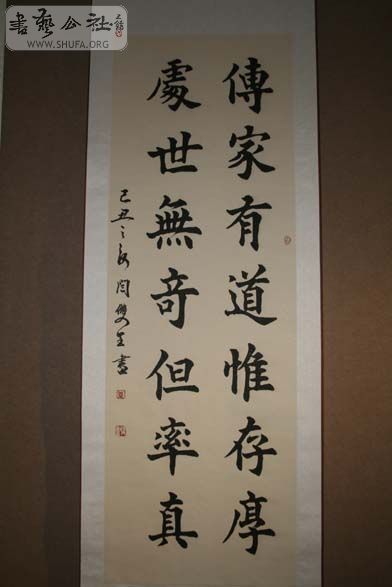 傳家有道惟存厚
處世無奇但率真
己丑之秋閆雙生書
書藝公社
WWW.SHUFA.ORG